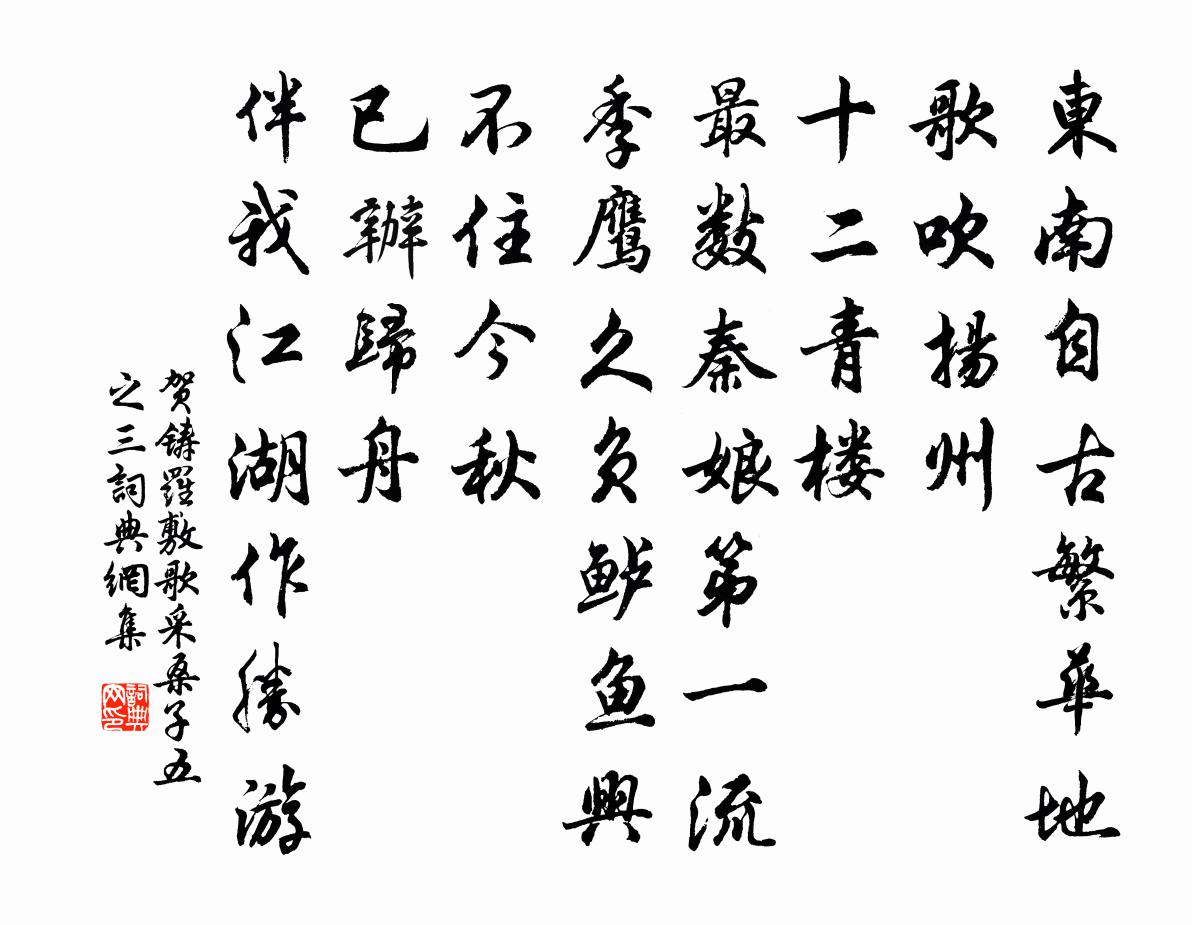 東南自古繁華地
歌吹揚州
十二青楼
最数秦娘第一流
季鹰久负鲈鱼興
不住今秋
已辦歸舟
伴我江湖作勝游
贺鑄羅敷歌采桑子五
之三詞典網集
詞典网印